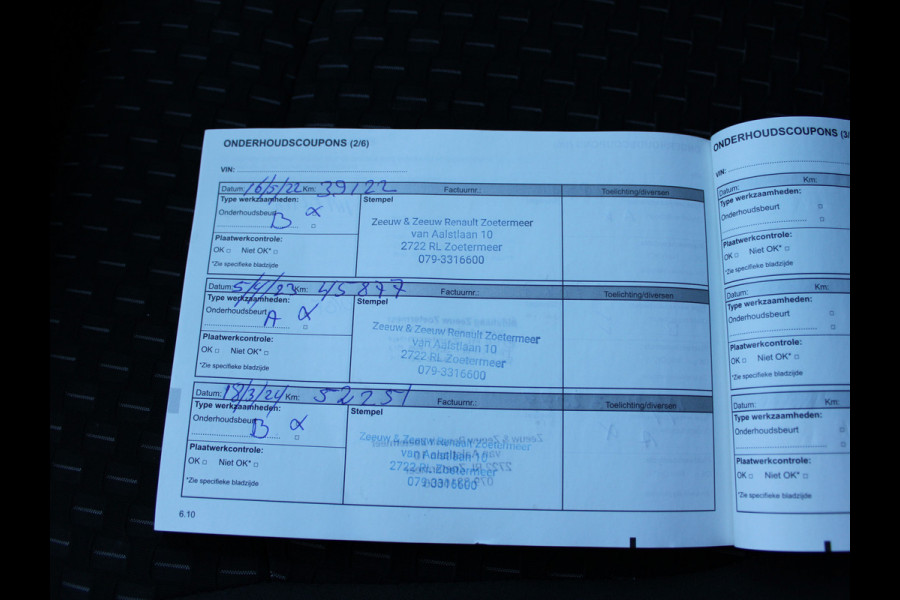 ONDERHOUDSCOUPONS (2/6)
VIN:
Datum: 16/5/22 Km: 39122 Factuurnr.: Toelichting/diversen
Type werkzaamheden: Stempel
Onderhoudsbeurt B α
Zeeuw & Zeeuw Renault Zoetermeer
van Aalstlaan 10
2722 RL Zoetermeer
079-3316600
Plaatwerkcontrole:
OK □ Niet OK* □
*Zie specifieke bladzijde
Datum: 5/4/23 Km: 45877 Factuurnr.: Toelichting/diversen
Type werkzaamheden: Stempel
Onderhoudsbeurt A α
Zeeuw & Zeeuw Renault Zoetermeer
van Aalstlaan 10
2722 RL Zoetermeer
079-3316600
Plaatwerkcontrole:
OK □ Niet OK* □
*Zie specifieke bladzijde
Datum: 18/3/24 Km: 52251 Factuurnr.: Toelichting/diversen
Type werkzaamheden: Stempel
Onderhoudsbeurt B α
Zeeuw & Zeeuw Renault Zoetermeer
van Aalstlaan 10
2722 RL Zoetermeer
079-3316600
Plaatwerkcontrole:
OK □ Niet OK* □
*Zie specifieke bladzijde
6.10
ONDERHOUDSCOUPONS (3/
VIN:
Datum: Km:
Type werkzaamheden:
Onderhoudsbeurt □
Plaatwerkcontrole:
OK □ Niet OK* □
*Zie specifieke bladzijde
Datum: Km:
Type werkzaamheden:
Onderhoudsbeurt □
Plaatwerkcontrole:
OK □ Niet OK* □
*Zie specifieke bladzijde
Datum: Km:
Type werkzaamheden:
Onderhoudsbeurt □
Plaatwerkcontrole:
OK □ Niet OK* □
*Zie specifieke bladzijde